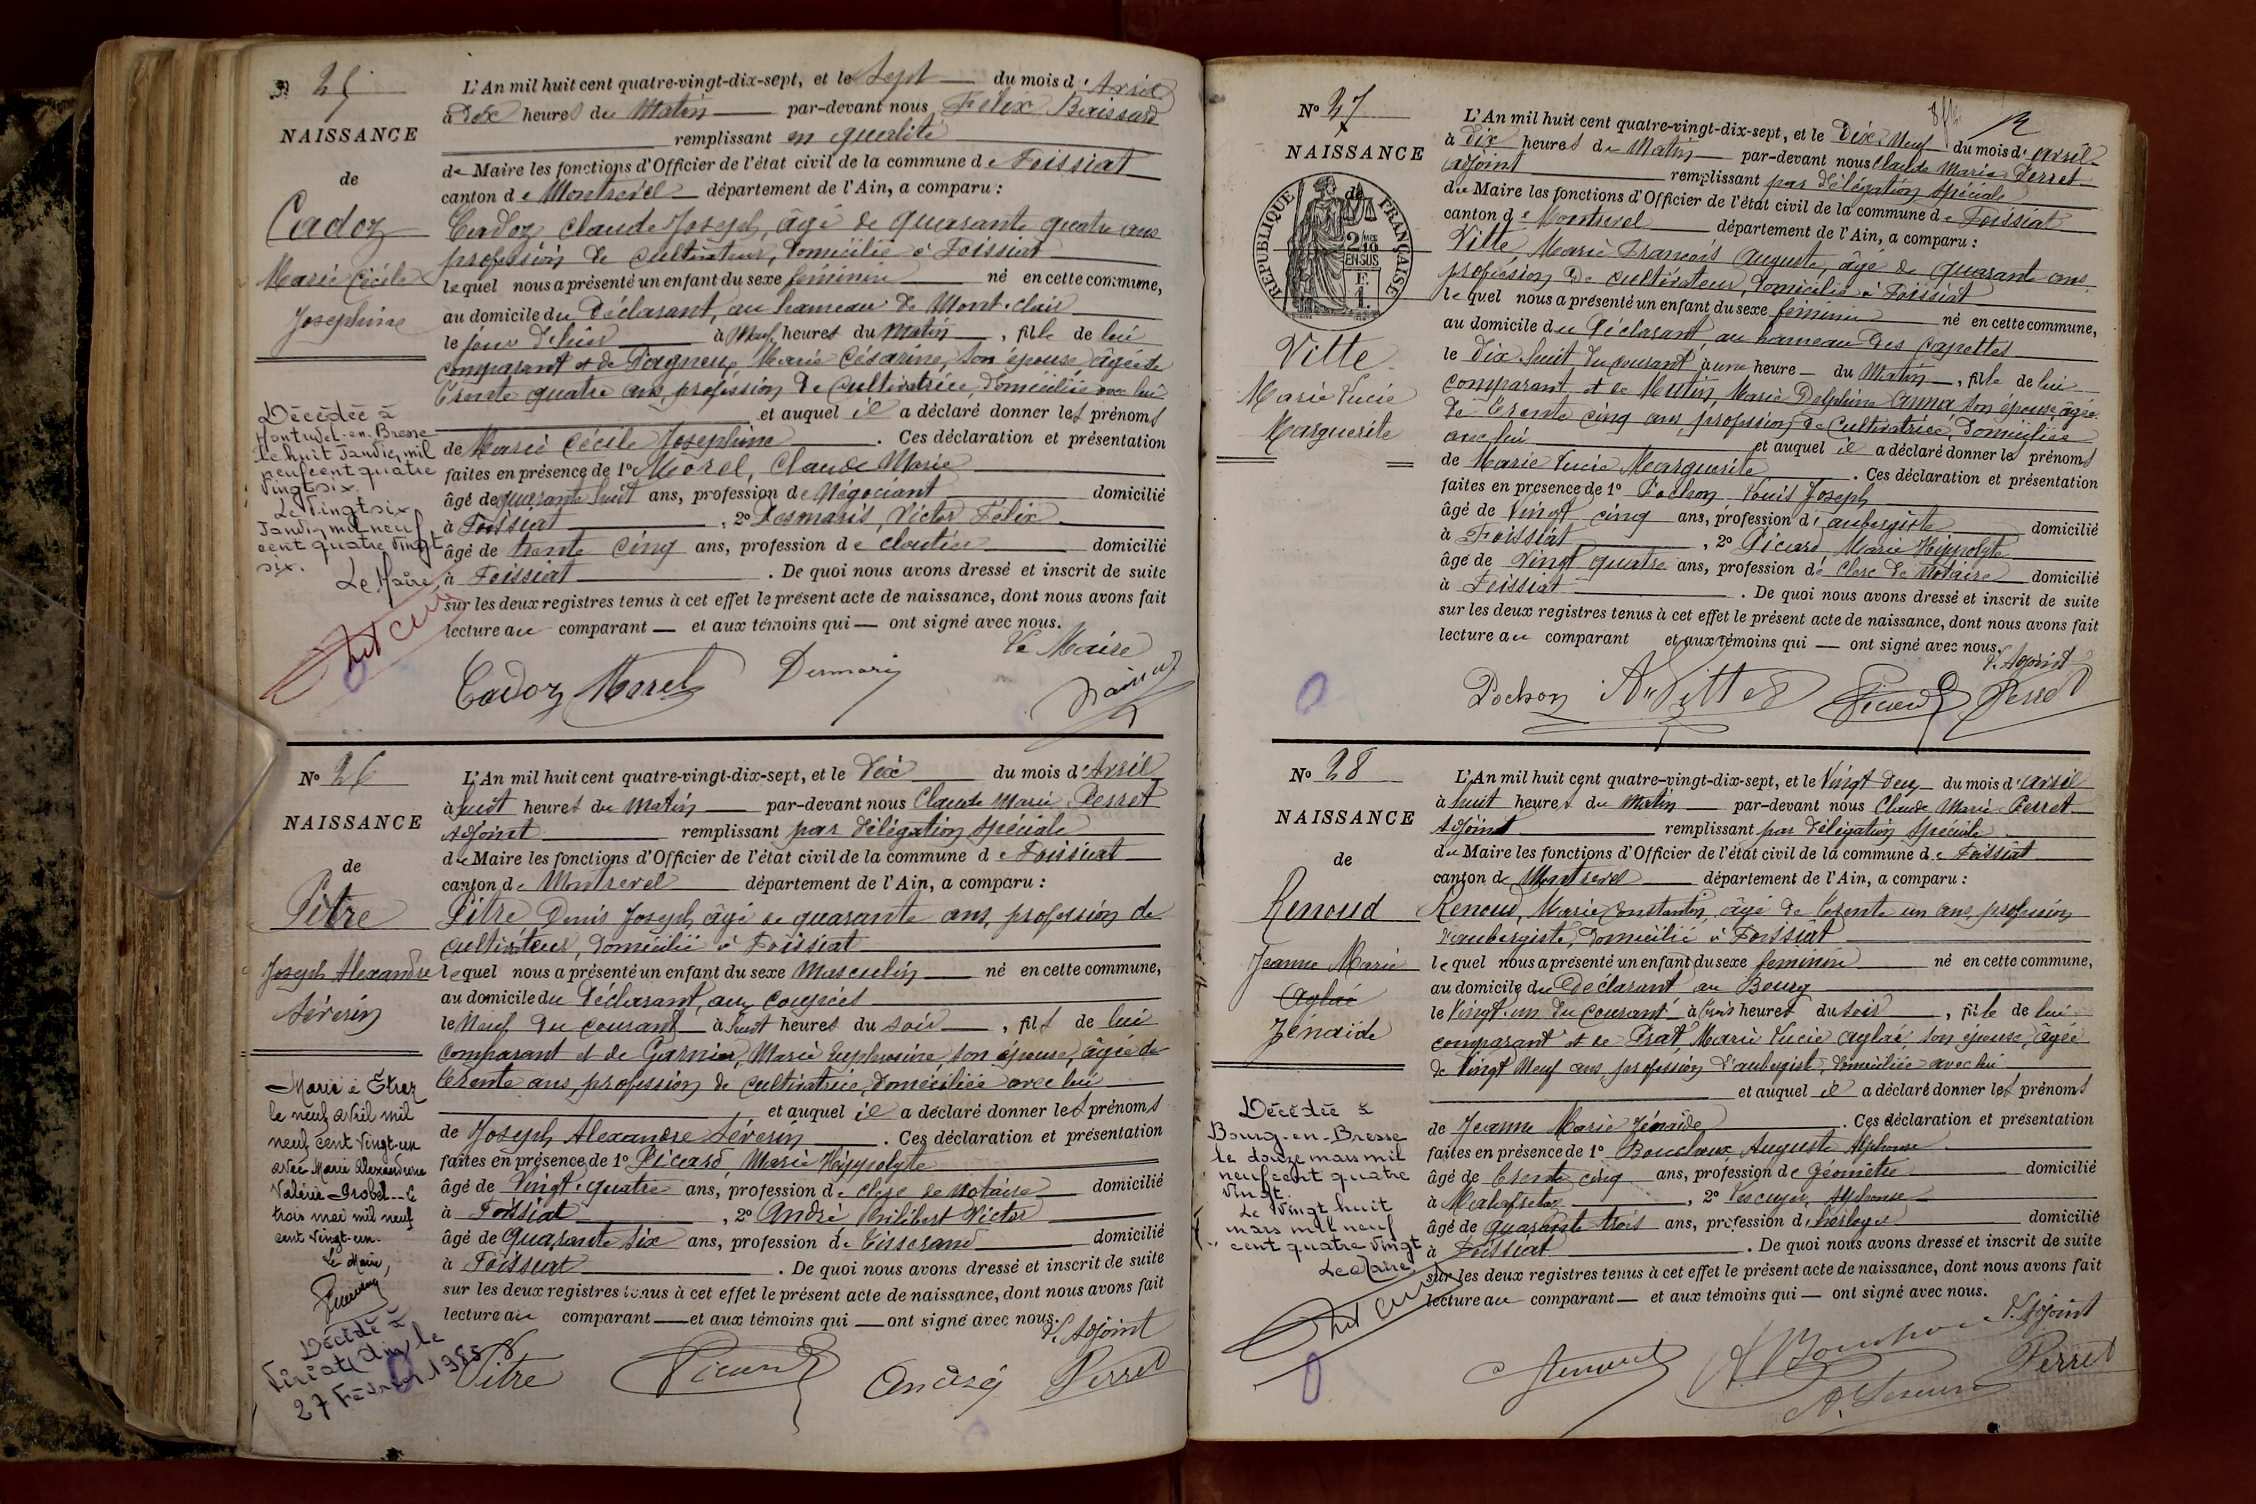 N° 25
NAISSANCE
de
Cadoz
Marie Cécile
Joséphine
L'An mil huit cent quatre-vingt-dix-sept, et le Sept du mois d'Avril
à Dix heures du Matin par-devant nous Félix Boissard
remplissant en qualité
de Maire les fonctions d'Officier de l'état civil de la commune de Foissiat
canton de Montrevel département de l'Ain, a comparu :
Cadoz Claude Joseph, âgé de quarante quatre ans
profession de cultivateur, domicilié à Foissiat
lequel nous a présenté un enfant du sexe féminin né en cette commune,
au domicile du Déclarant, au hameau de Mont-clair
le jour d'hier à Neuf heures du Matin, fille de lui
comparant et de Pagneux, Marie Césarine, son épouse âgée de
trente quatre ans, profession de cultivatrice, domiciliée avec lui
et auquel il a déclaré donner les prénoms
de Marie Cécile Joséphine. Ces déclaration et présentation
faites en présence de 1° Morel, Claude Marie
âgé de quarante huit ans, profession de Négociant domicilié
à Foissiat, 2° Desmaris, Victor Félix
âgé de trente cinq ans, profession de cloutier domicilié
à Foissiat. De quoi nous avons dressé et inscrit de suite
sur les deux registres tenus à cet effet le présent acte de naissance, dont nous avons fait
lecture au comparant et aux témoins qui ont signé avec nous.
Le Maire
Cadoz Morel Desmaris
Décédée à
Montrevel-en-Bresse
Le huit Janvier mil
neuf cent quatre
Vingt six.
Le Vingt six
Janvier mil neuf
cent quatre Vingt
six.
Le Maire
N° 26
NAISSANCE
de
Pitre
Joseph Alexandre
Séverin
L'An mil huit cent quatre-vingt-dix-sept, et le Dix du mois d'Avril
à huit heures du Matin par-devant nous Claude Marie Perret
Adjoint remplissant par délégation spéciale
du Maire les fonctions d'Officier de l'état civil de la commune de Foissiat
canton de Montrevel département de l'Ain, a comparu :
Pitre Denis Joseph âgé de quarante ans, profession de
cultivateur, domicilié à Foissiat
lequel nous a présenté un enfant du sexe Masculin né en cette commune,
au domicile du Déclarant, aux
le Neuf du courant à huit heures du soir, fils de lui
comparant et de Garnier, Marie Euphrosine, son épouse, âgée de
trente ans, profession de cultivatrice, domiciliée avec lui
et auquel il a déclaré donner les prénoms
de Joseph Alexandre Séverin. Ces déclaration et présentation
faites en présence de 1° Picard, Marie Hippolyte
âgé de Vingt-quatre ans, profession de clerc de Notaire domicilié
à Foissiat, 2° André, Philibert Victor
âgé de Quarante six ans, profession de Tisserand domicilié
à Foissiat. De quoi nous avons dressé et inscrit de suite
sur les deux registres tenus à cet effet le présent acte de naissance, dont nous avons fait
lecture au comparant et aux témoins qui ont signé avec nous.
L'Adjoint
Pitre Picard André Perret
Marié à Etrez
le neuf avril mil
neuf cent vingt-un
avec Marie Alexandrine
Valérie Grobel. Le
trois mai mil neuf
cent vingt-un.
Le Maire,
Décédé à
Viriat (Ain) le
27 Février 1985
N° 27
NAISSANCE
de
RÉPUBLIQUE FRANÇAISE
2/10
EN SUS
Vitte
Marie Lucie
Marguerite
L'An mil huit cent quatre-vingt-dix-sept, et le Dix Neuf du mois d'avril
à Dix heures du Matin par-devant nous Claude Marie Perret
adjoint remplissant par délégation spéciale
du Maire les fonctions d'Officier de l'état civil de la commune de Foissiat
canton de Montrevel département de l'Ain, a comparu :
Vitte, Marie François Auguste, âgé de quarante ans
profession de cultivateur, domicilié à Foissiat
lequel nous a présenté un enfant du sexe féminin né en cette commune,
au domicile du Déclarant, au hameau des Capettes
le Dix huit du courant à une heure du Matin, fille de lui
comparant et de Mutin, Marie Delphine Anna son épouse, âgée
de trente cinq ans, profession de Cultivatrice, domiciliée
avec lui et auquel il a déclaré donner les prénoms
de Marie Lucie Marguerite. Ces déclaration et présentation
faites en présence de 1° Pochon Louis Joseph
âgé de Vingt cinq ans, profession d'aubergiste domicilié
à Foissiat, 2° Picard Marie Hippolyte
âgé de Vingt quatre ans, profession de clerc de Notaire domicilié
à Foissiat. De quoi nous avons dressé et inscrit de suite
sur les deux registres tenus à cet effet le présent acte de naissance, dont nous avons fait
lecture au comparant et aux témoins qui ont signé avec nous.
L'Adjoint
Pochon A. Vitte Picard Perret
N° 28
NAISSANCE
de
Renoud
Jeanne Marie
Aglaé
Zénaïde
L'An mil huit cent quatre-vingt-dix-sept, et le Vingt Deux du mois d'avril
à huit heures du Matin par-devant nous Claude Marie Perret
Adjoint remplissant par délégation spéciale
du Maire les fonctions d'Officier de l'état civil de la commune de Foissiat
canton de Montrevel département de l'Ain, a comparu :
Renoud, Marie Constantin, âgé de trente un ans, profession
d'aubergiste, domicilié à Foissiat
lequel nous a présenté un enfant du sexe féminin né en cette commune,
au domicile du Déclarant au Bourg
le Vingt-un du courant à trois heures du soir, fille de lui
comparant et de Prat, Marie Lucie aglaé, son épouse, âgée
de Vingt Neuf ans, profession d'aubergiste, domiciliée avec lui
et auquel il a déclaré donner les prénoms
de Jeanne Marie Zénaïde. Ces déclaration et présentation
faites en présence de 1° Bouchoux Auguste Alphonse
âgé de trente cinq ans, profession de Géomètre domicilié
à Malafretaz, 2° Lescuyer, Alphonse
âgé de quarante trois ans, profession d'horloger domicilié
à Foissiat. De quoi nous avons dressé et inscrit de suite
sur les deux registres tenus à cet effet le présent acte de naissance, dont nous avons fait
lecture au comparant et aux témoins qui ont signé avec nous.
L'Adjoint
Renoud A. Bouchoux Perret
Décédée à
Bourg-en-Bresse
le douze mars mil
neuf cent quatre
vingt.
Le Vingt huit
mars mil neuf
cent quatre Vingt
Le Maire